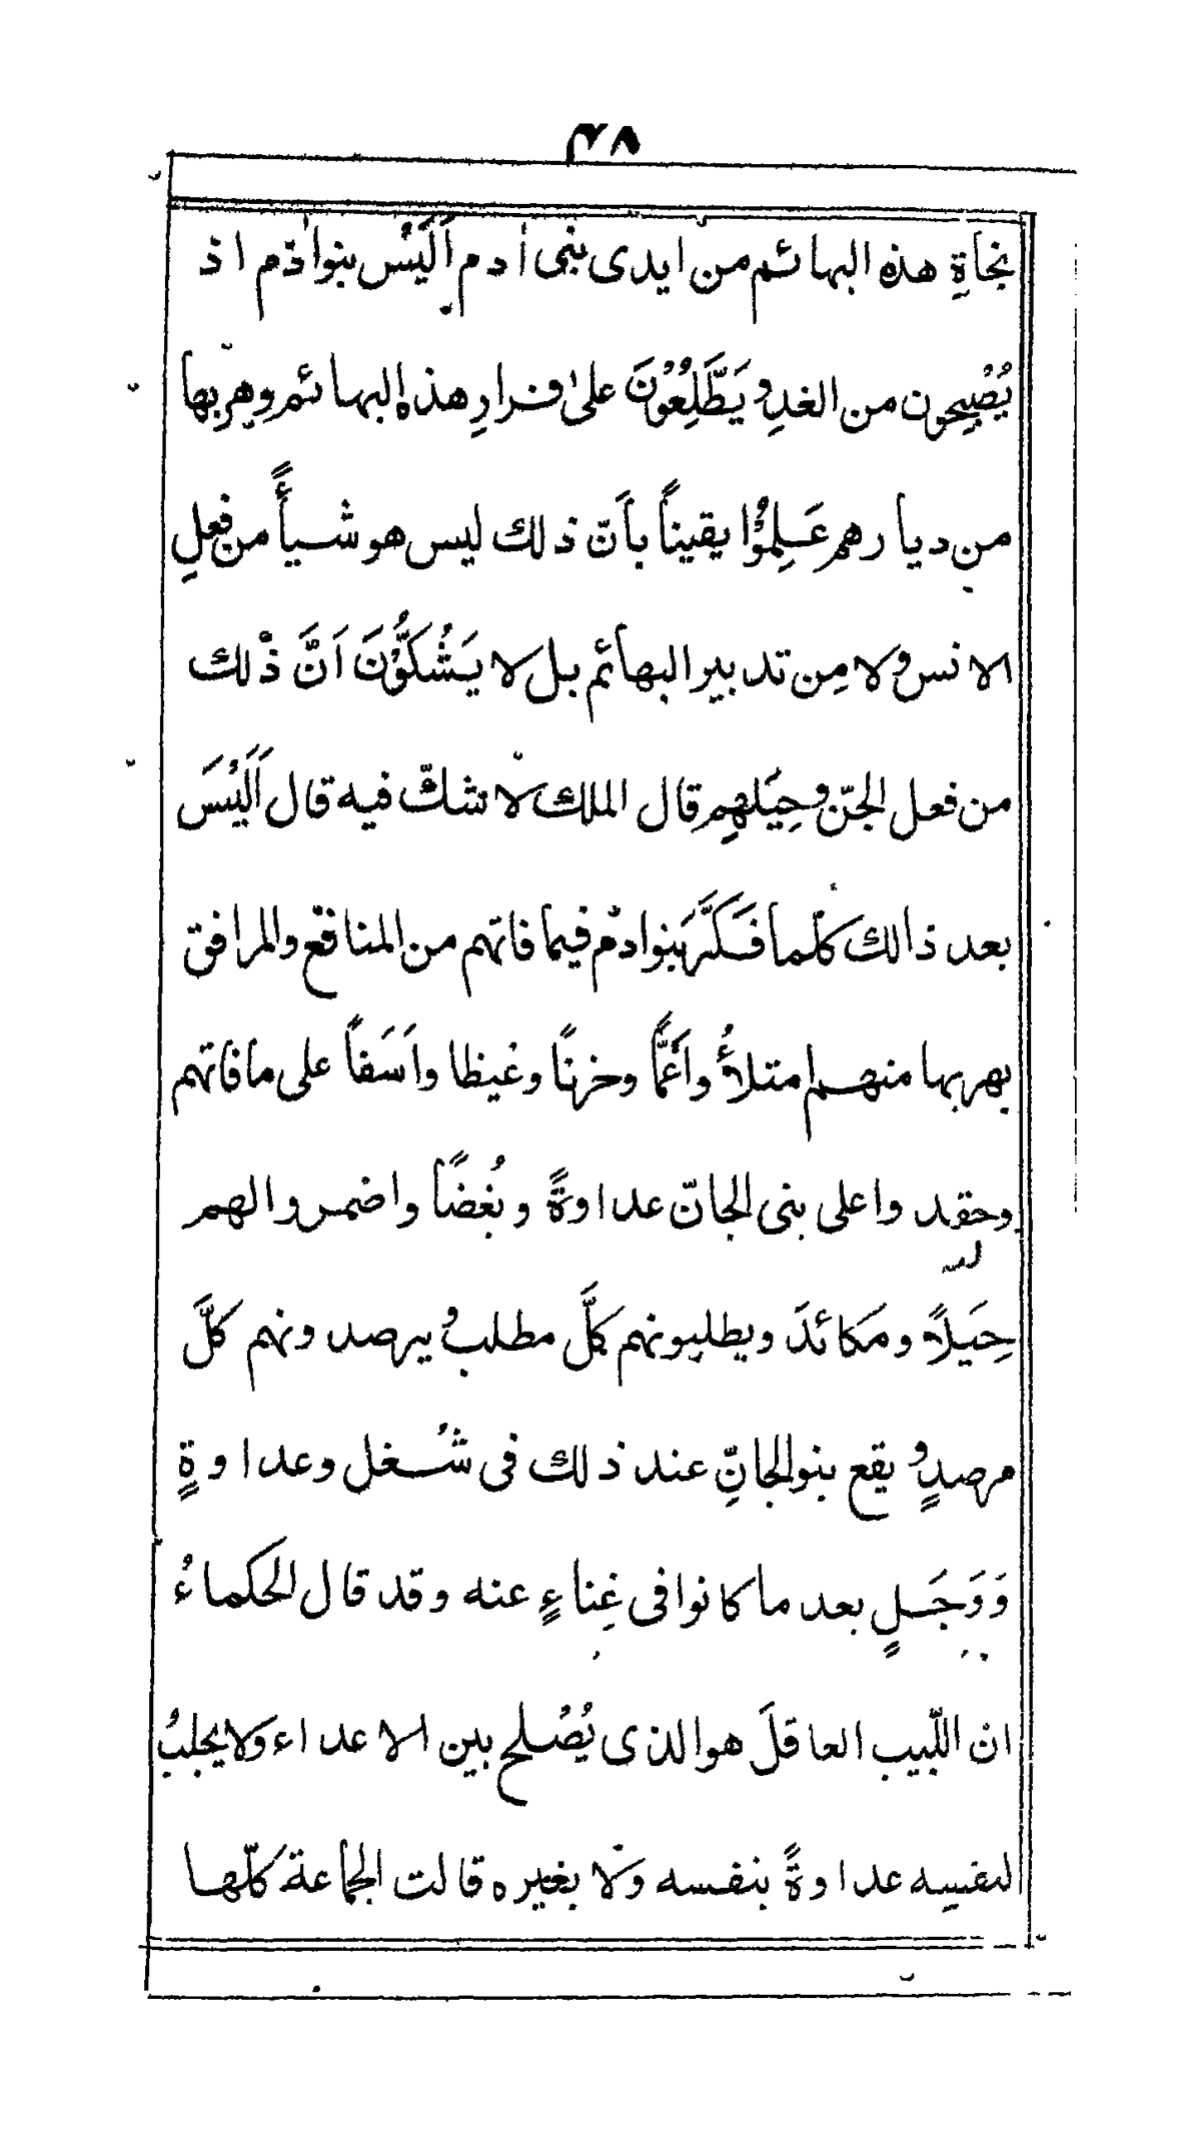 ٣٨
نجاةِ هذه البهائم من ايدى بنى اٰدم اَلَيْسَ بنو اٰدم اذ
يُصْبِحون من الغدِ و يَطَّلِعُوْنَ علىٰ فرارِ هذه البهائم وهربها
من ديارهم عَلِمُوْا يقيناً بأنّ ذلك ليس هو شيأً من فعلِ
الانس ولا مِن تدبير البهائم بل لا يَشُكُّوْنَ اَنَّ ذٰلك
من فعل الجنّ وحِيَلهم قال الملك لا شكّ فيه قال اَلَيْسَ
بعد ذالك كلّما فَكَّرَ بنو ادم فيما فاتهم من المنافع والمرافق
بهربها منهم امتلأُوا غمًّا وحزنًا وغيظا واَسَفاً على ما فاتهم
وحقدوا على بنى الجانّ عداوةً وبُغضًا واضمروا لهم
حِيَلاً ومَكائدَ ويطلبونهم كلَّ مطلب و يرصدونهم كلَّ
مرصدٍ و يقع بنو الجانِّ عند ذلك فى شُغل وعداوةٍ
وَوَجَلٍ بعد ما كانوا فى غِناءٍ عنه وقد قال الحكماءُ
ان اللّبيب العاقلَ هو الذى يُصْلح بين الاعداء ولا يجلبُ
لنفسِه عداوةً بنفسه ولا بغيره قالت الجماعة كلّها